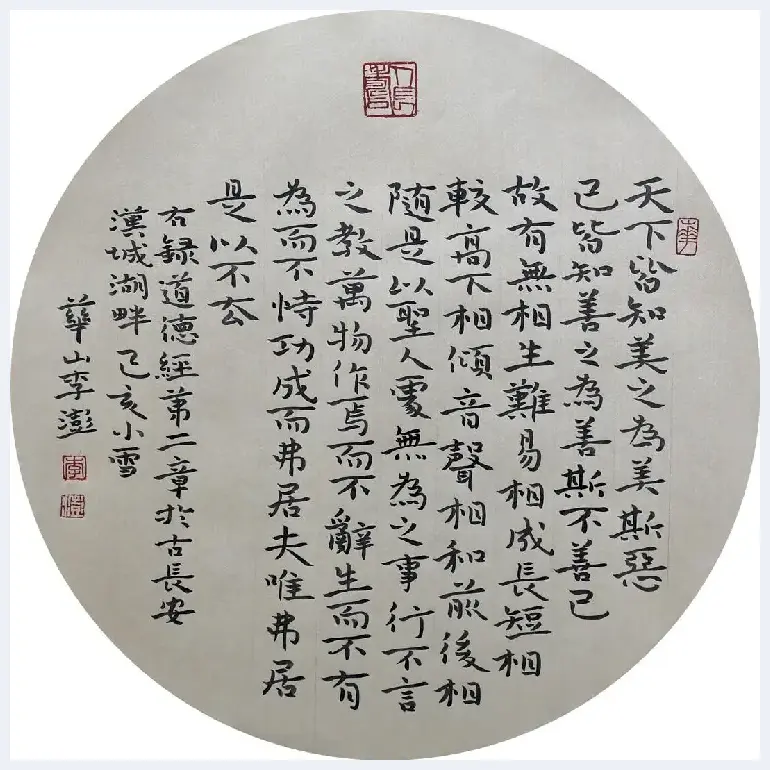 天下皆知美之為美斯惡
已皆知善之為善斯不善已
故有無相生難易相成長短相
較高下相傾音聲相和前後相
隨是以聖人處無為之事行不言
之教萬物作焉而不辭生而不有
為而不恃功成而弗居夫唯弗居
是以不去
右録道德經第二章於古長安
漢城湖畔己亥小雪
華山李澎